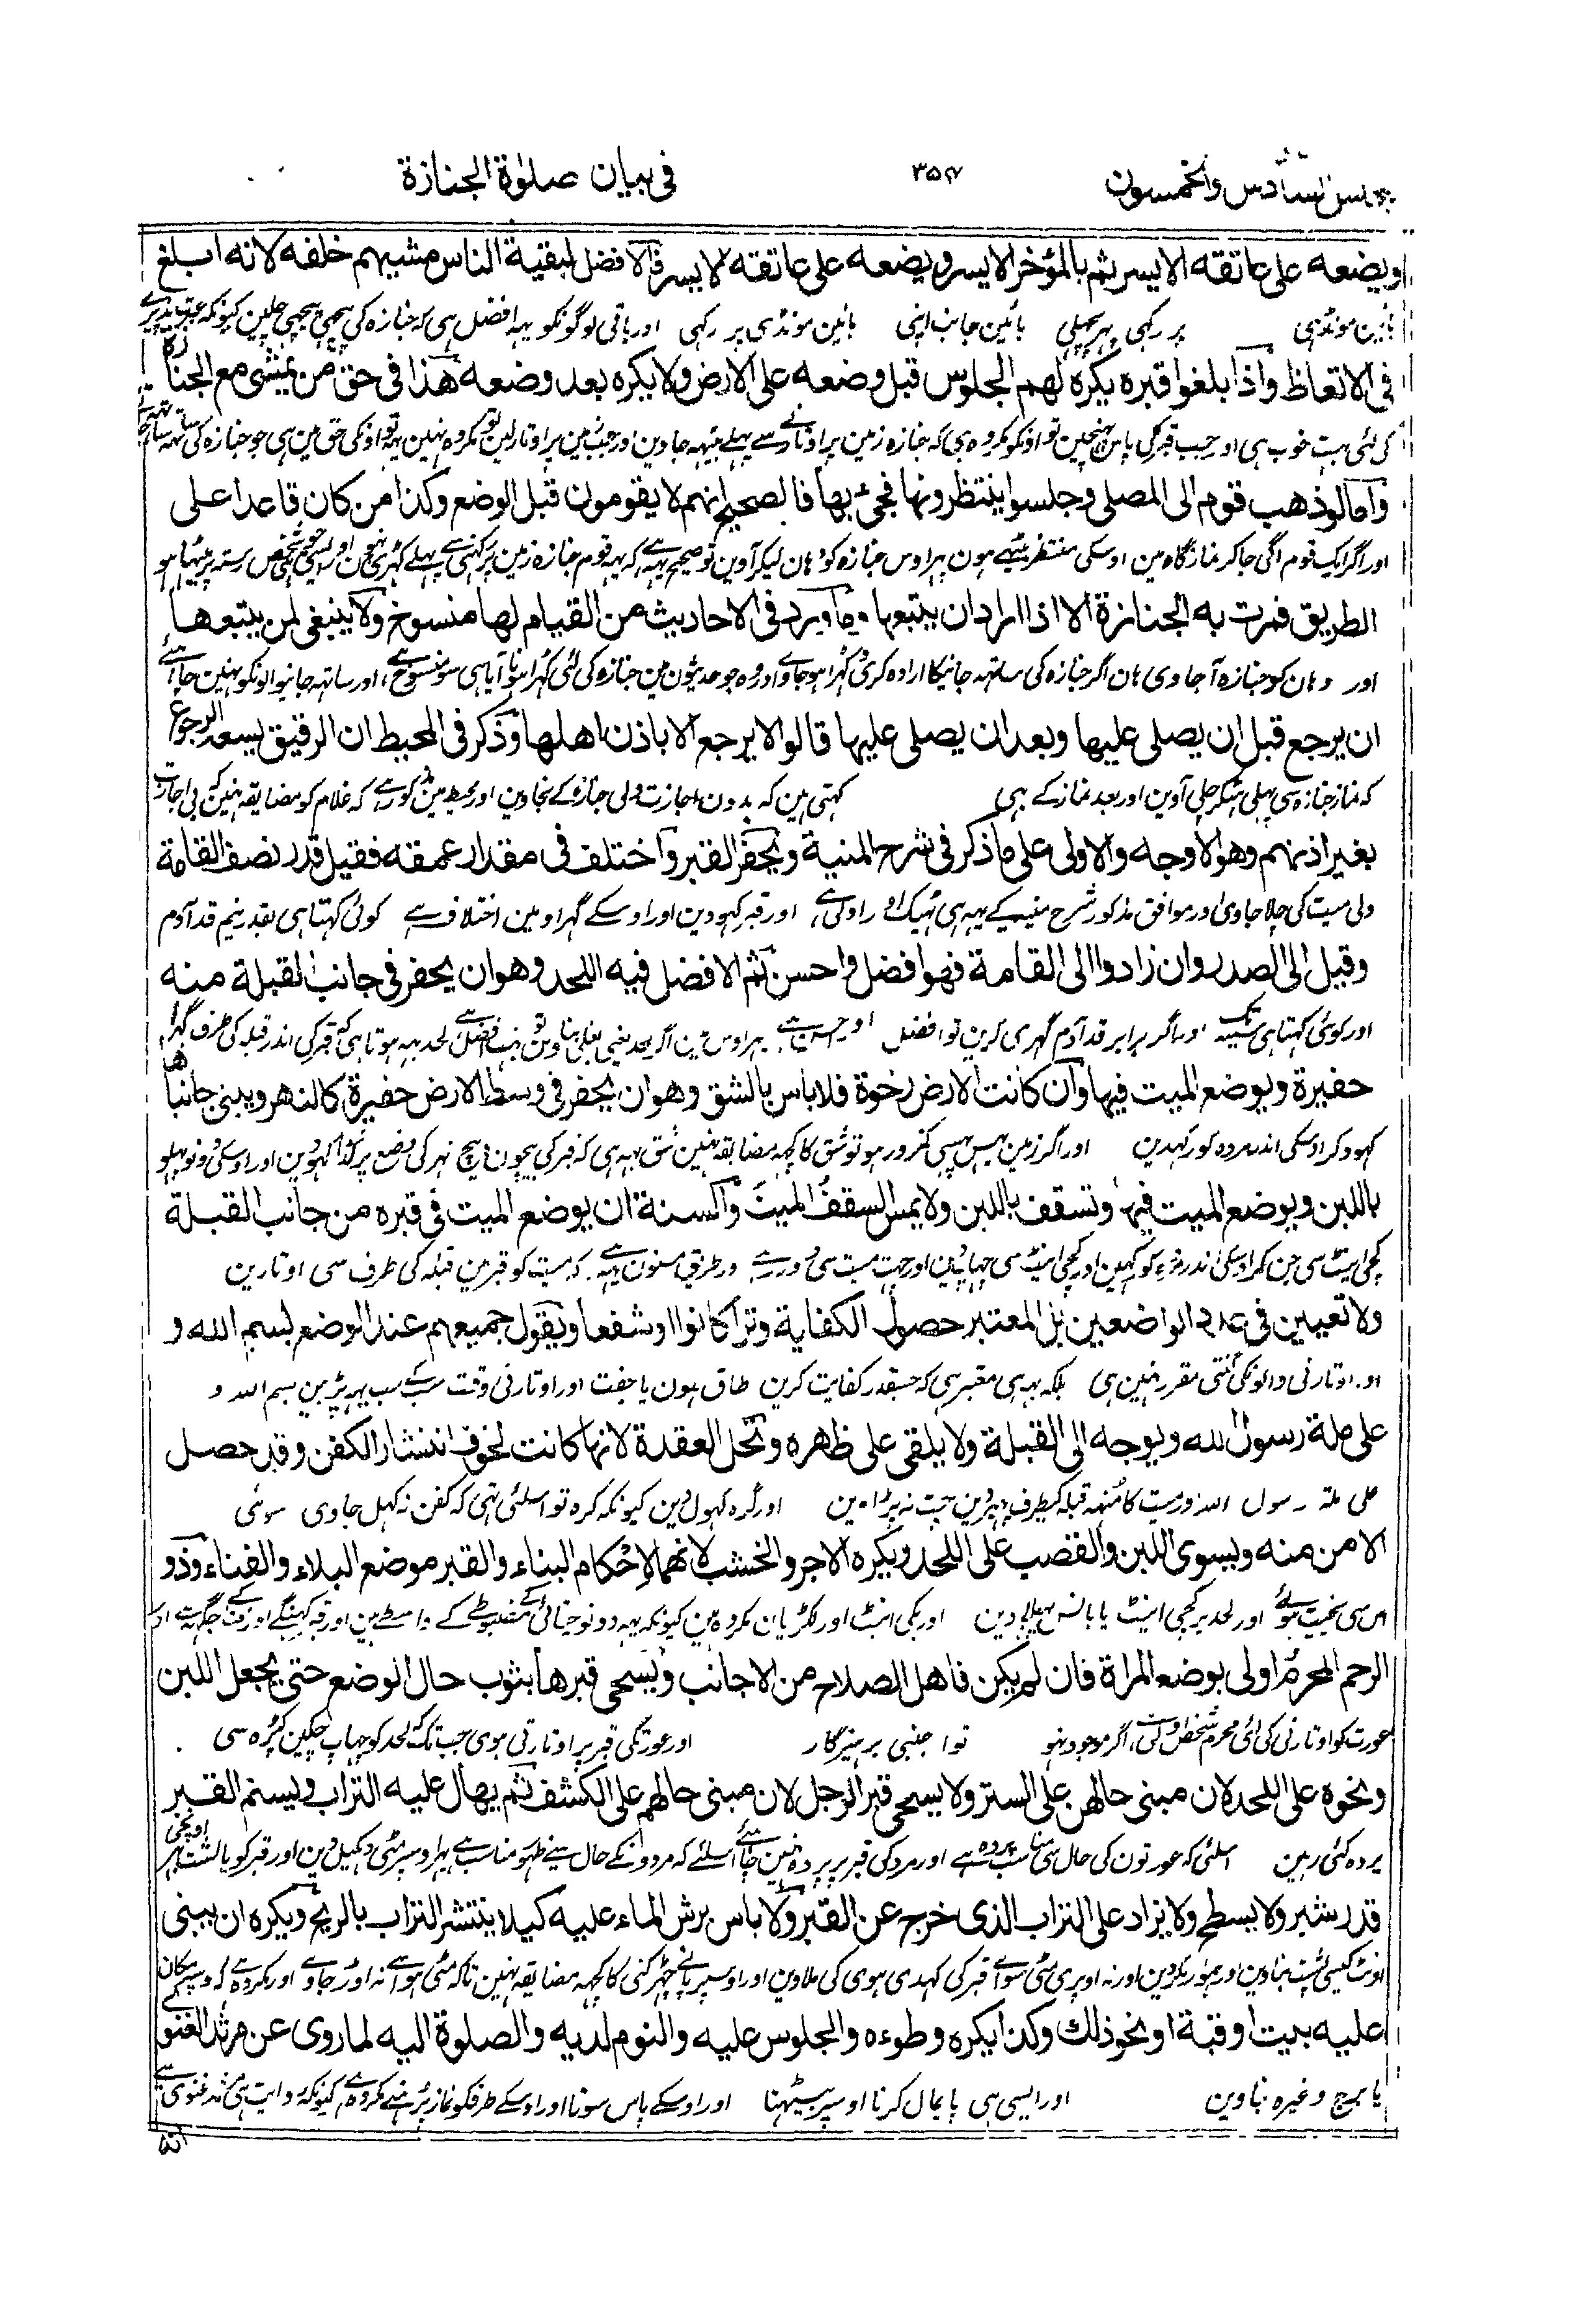 مجلس السادس والخمسون ٣٥٧ فى بيان صلوة الجنازة
ويضعه على عاتقه الايسر ثم بالمؤخر الايسر ويضعه على عاتقه الايسر فالافضل لبقية الناس مشيهم خلفه لانه ابلغ
بائین مونڈہی پر رکہی پہر پچہلی بائین جانب اپنی بائین مونڈہی پر رکہی اور باقی لوگونکو یہہ افضل ہی کہ جنازہ کی پیچہی پیچہی چلین کیونکہ
فى الاتعاظ واذا بلغوا قبره يكره لهم الجلوس قبل وضعه على الارض ولا يكره بعد وضعه هذا فى حق من يمشى مع الجنازة
کی لئی بہت خوب ہی اور جب قبر کی پاس پہنچین تو اونکو مکروہ ہی کہ جنازہ زمین پر اوتارنے سے پہلے بیٹہہ جاوین اور جب زمین پر اوتارلین تو مکروہ نہین یہہ تو اونکی حق مین ہی جو جنازہ کی ساتہہ
واما لو ذهب قوم الى المصلى وجلسوا ينتظرونها فجىء بها فالصحيح انهم لا يقومون قبل الوضع وكذا من كان قاعدا على
اور اگر ایک قوم آگی جا کر نماز گاہ مین اوسکی منتظر بیٹہے ہون پہر اوس جنازہ کو وہان لیکر آوین تو صحیح یہہ ہے کہ یہہ قوم جنازہ زمین پر رکہنی سے پہلے کہڑی نہون اور ایسی ہی جو شخص رستہ پر بیٹہا ہو
الطريق فمرت به الجنازة الا اذا اراد ان يتبعها وما ورد فى الاحاديث من القيام لها منسوخ ولا ينبغى لمن يتبعها
اور وہان کو جنازہ آجاوی ہان اگر جنازہ کی ساتہہ جانیکا ارادہ کری تو کہڑا ہو جاوے اور وہ جو حدیثون مین جنازہ کی لئی کہڑا ہونا آیا ہی سو منسوخ ہے، اور ساتہہ جانیوالونکو نہین چاہئے
ان يرجع قبل ان يصلى عليها وبعد ان يصلى عليها قالوا لا يرجع الا باذن اهلها وذكر فى المحيط ان الرفيق يسعه الرجوع
کہ نماز جنازہ سی پہلی ہٹکر چلی آوین اور بعد نماز کے بہی کہتی ہین کہ بدون اجازت ولی جنازہ کے نجاوین اور محیط مین مذکور ہے کہ غلام کو مضایقہ نہین کہ بی اجازت
بغير اذنهم وهو الاوجه والاولى على ما ذكر فى شرح المنية ويحفر القبر واختلف فى مقدار عمقه فقيل قدر نصف القامة
ولی میت کی چلا جاوی اور موافق مذکور شرح منیہ کے یہہ ہی ٹہیک اور اولی ہے اور قبر کہودین اور اوسکے گہراو مین اختلاف ہے کوئی کہتا ہی بقدر نیم قد آدم
وقيل الى الصدر وان زادوا الى القامة فهو افضل واحسن ثم الافضل فيه اللحد وهو ان يحفر فى جانب القبلة منه
اور کوئی کہتا ہی سینہ تک اور اگر برابر قد آدم گہری کرین تو افضل اور احسن ہے پہر اوس مین اگر لحد یعنی بغلی بناوین تو بہت افضل ہے لحد یہہ ہوتا ہی کہ قبر کی اندر قبلہ کی طرف گہرا
حفيرة ويوضع الميت فيها وان كانت الارض رخوة فلا باس بالشق وهو ان يحفر فى وسط الارض حفيرة كالنهر ويبنى جانباها
کہود کر اوسکی اندر مردہ کو رکہدین اور اگر زمین پہس پہسی کمزور ہو تو شق کا کچہہ مضایقہ نہین شق یہہ ہی کہ قبر کی بیچون بیچ نہر کی وضع پر گڈا کہودین اور اوسکی دونو پہلو
باللبن ويوضع الميت فيها وتسقف باللبن ولا يمس السقف الميت والسنة ان يوضع الميت فى قبره من جانب القبلة
کچی اینٹ سی چن کر اوسکی اندر مردہ کو رکہین اور کچی اینٹ سی چہاوین اور چہت میت سی دور رہے اور طریق مسنون یہہ ہے کہ میت کو قبر مین قبلہ کی طرف سی اوتارین
ولا تعيين فى عدد الواضعين بل المعتبر حصول الكفاية وترا كانوا او شفعا ويقول جميعهم عند الوضع بسم الله و
اور اوتارنی والونکی گنتی مقرر نہین ہی بلکہ یہہ ہی معتبر ہی کہ جسقدر کفایت کرین طاق ہون یا جفت اور اوتارنی وقت سب کے سب یہہ پڑہین بسم اللہ و
على ملة رسول الله ويوجه الى القبلة ولا يلقى على ظهره وتحل العقدة لانها كانت لخوف انتشار الكفن وقد حصل
علی ملۃ رسول اللہ اور میت کا مُنہہ قبلہ کیطرف پہیر دین چت نہ پڑا دین اور گرہ کہول دین کیونکہ گرہ تو اسلئی تہی کہ کفن نہ کہل جاوی سوئی
الامن منه ويسوى اللبن والقصب على اللحد ويكره الاجر والخشب لانهما لاحكام البناء والقبر موضع البلاء والفناء وذو
اس سی بخت ہوئے اور لحد پر کچی اینٹ یا بانسہ پہیلا دین اور پکی اینٹ اور لکڑیان مکروہ ہین کیونکہ یہہ دونو چنائی کے مضبوطے کے واسطے ہین اور قبر کہنگے اور فنا کے جگہہ ہے اور
الرحم المحرم اولى بوضع المراة فان لم يكن فاهل الصلاح من الاجانب ويسجى قبرها بثوب حال الوضع حتى يجعل اللبن
عورت کو اوتارنی کی لئی محرم شخص اولی ہی، اگر موجود نہو تو اجنبی پرہیزگار اور عورتکی قبر پر اوتارتی ہوی جب تک کہ لحد کو چہاپ چکین کپڑہ سی
ونحوه على اللحد لان مبنى حالهن على الستر ولا يسجى قبر الرجل لان مبنى حالهم على الكشف ثم يهال عليه التراب ويسنم القبر
پردہ کئی رہین اسلئی کہ عورتون کی حال سی مناسب پردہ ہے اور مرد کی قبر پر پردہ نہین چاہئے اسلئے کہ مردونکے حال سی ظہور مناسب ہے پہر اوسپر مٹی دہکیل دین اور قبر کو بالشت بہر اونچی
قدر شبر ولا يسطح ولا يزاد على التراب الذى خرج عن القبر ولا باس برش الماء عليه كيلا ينتشر التراب بالريح ويكره ان يبنى
اونٹ کیسی پُشت بناوین اور چوڑی نکردین اور نہ اوپری مٹی سواے قبر کی کہدی ہوی کی ملاوین اور اوسپر پانے چہڑکنی کا کچہہ مضایقہ نہین تاکہ مٹی ہوا سے نہ اوڑ جاوے اور مکروہ ہے کہ اوسپر مکان
عليه بيت او قبة او نحو ذلك وكذا يكره وطوءه والجلوس عليه والنوم لديه والصلوة اليه لما روى عن مرثد الغنوى
یا برج وغیرہ بناوین اور ایسی ہی پایمال کرنا اوسپر بیٹہنا اور اوسکے پاس سونا اور اوسکے طرفکو نماز پڑہنے مکروہ ہے کیونکہ روایت ہی مرثد غنوی سے
انه